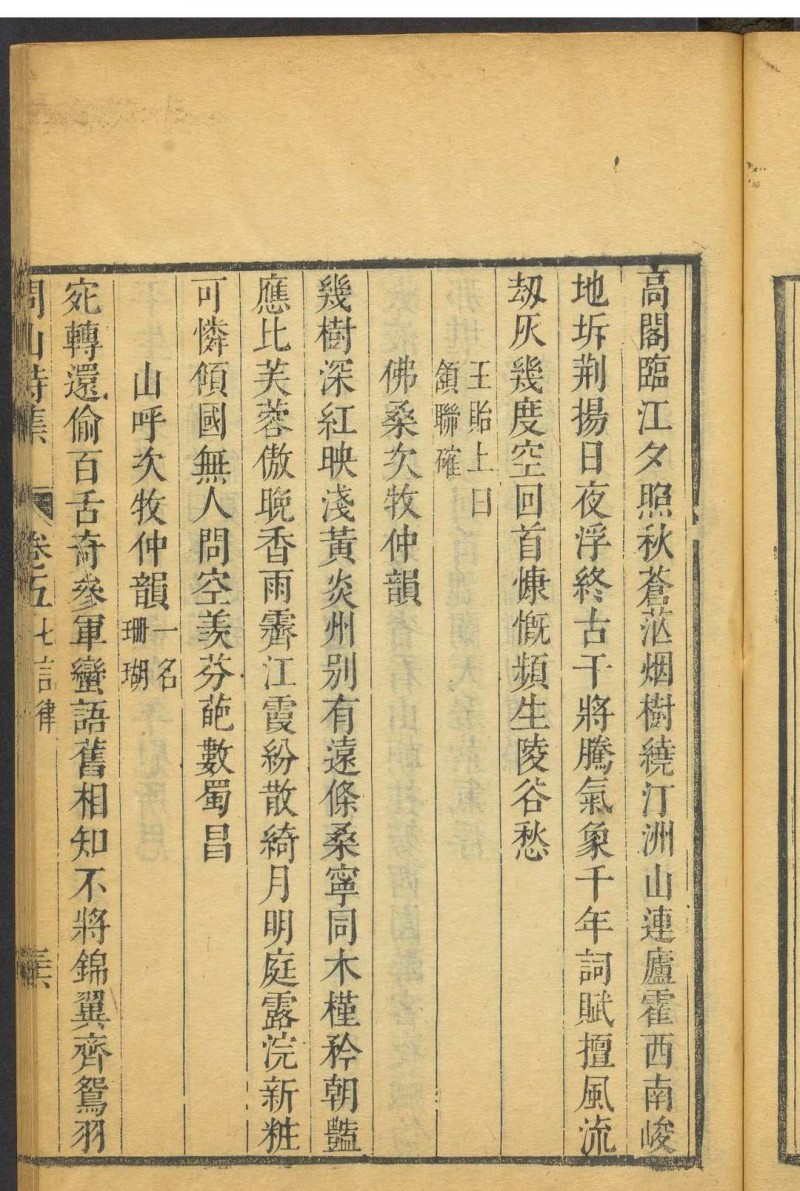 高閣臨江夕照秋蒼茫烟樹繞汀洲山連廬霍西南峻
地坼荆揚日夜浮終古干將騰氣象千年詞賦擅風流
刼灰幾度空回首慷慨頻生陵谷愁
王貽上曰
頷聯確
佛桑次牧仲韻
幾樹深紅映淺黃炎州别有遠條桑寧同木槿矜朝豔
應比芙蓉傲晚香雨霽江霞紛散綺月明庭露浣新粧
可憐傾國無人問空羨芬葩數蜀昌
山呼次牧仲韻一名珊瑚
宛轉還偷百舌奇參軍蠻語舊相知不將錦翼齊鴛羽
山詩集 卷五 七言律